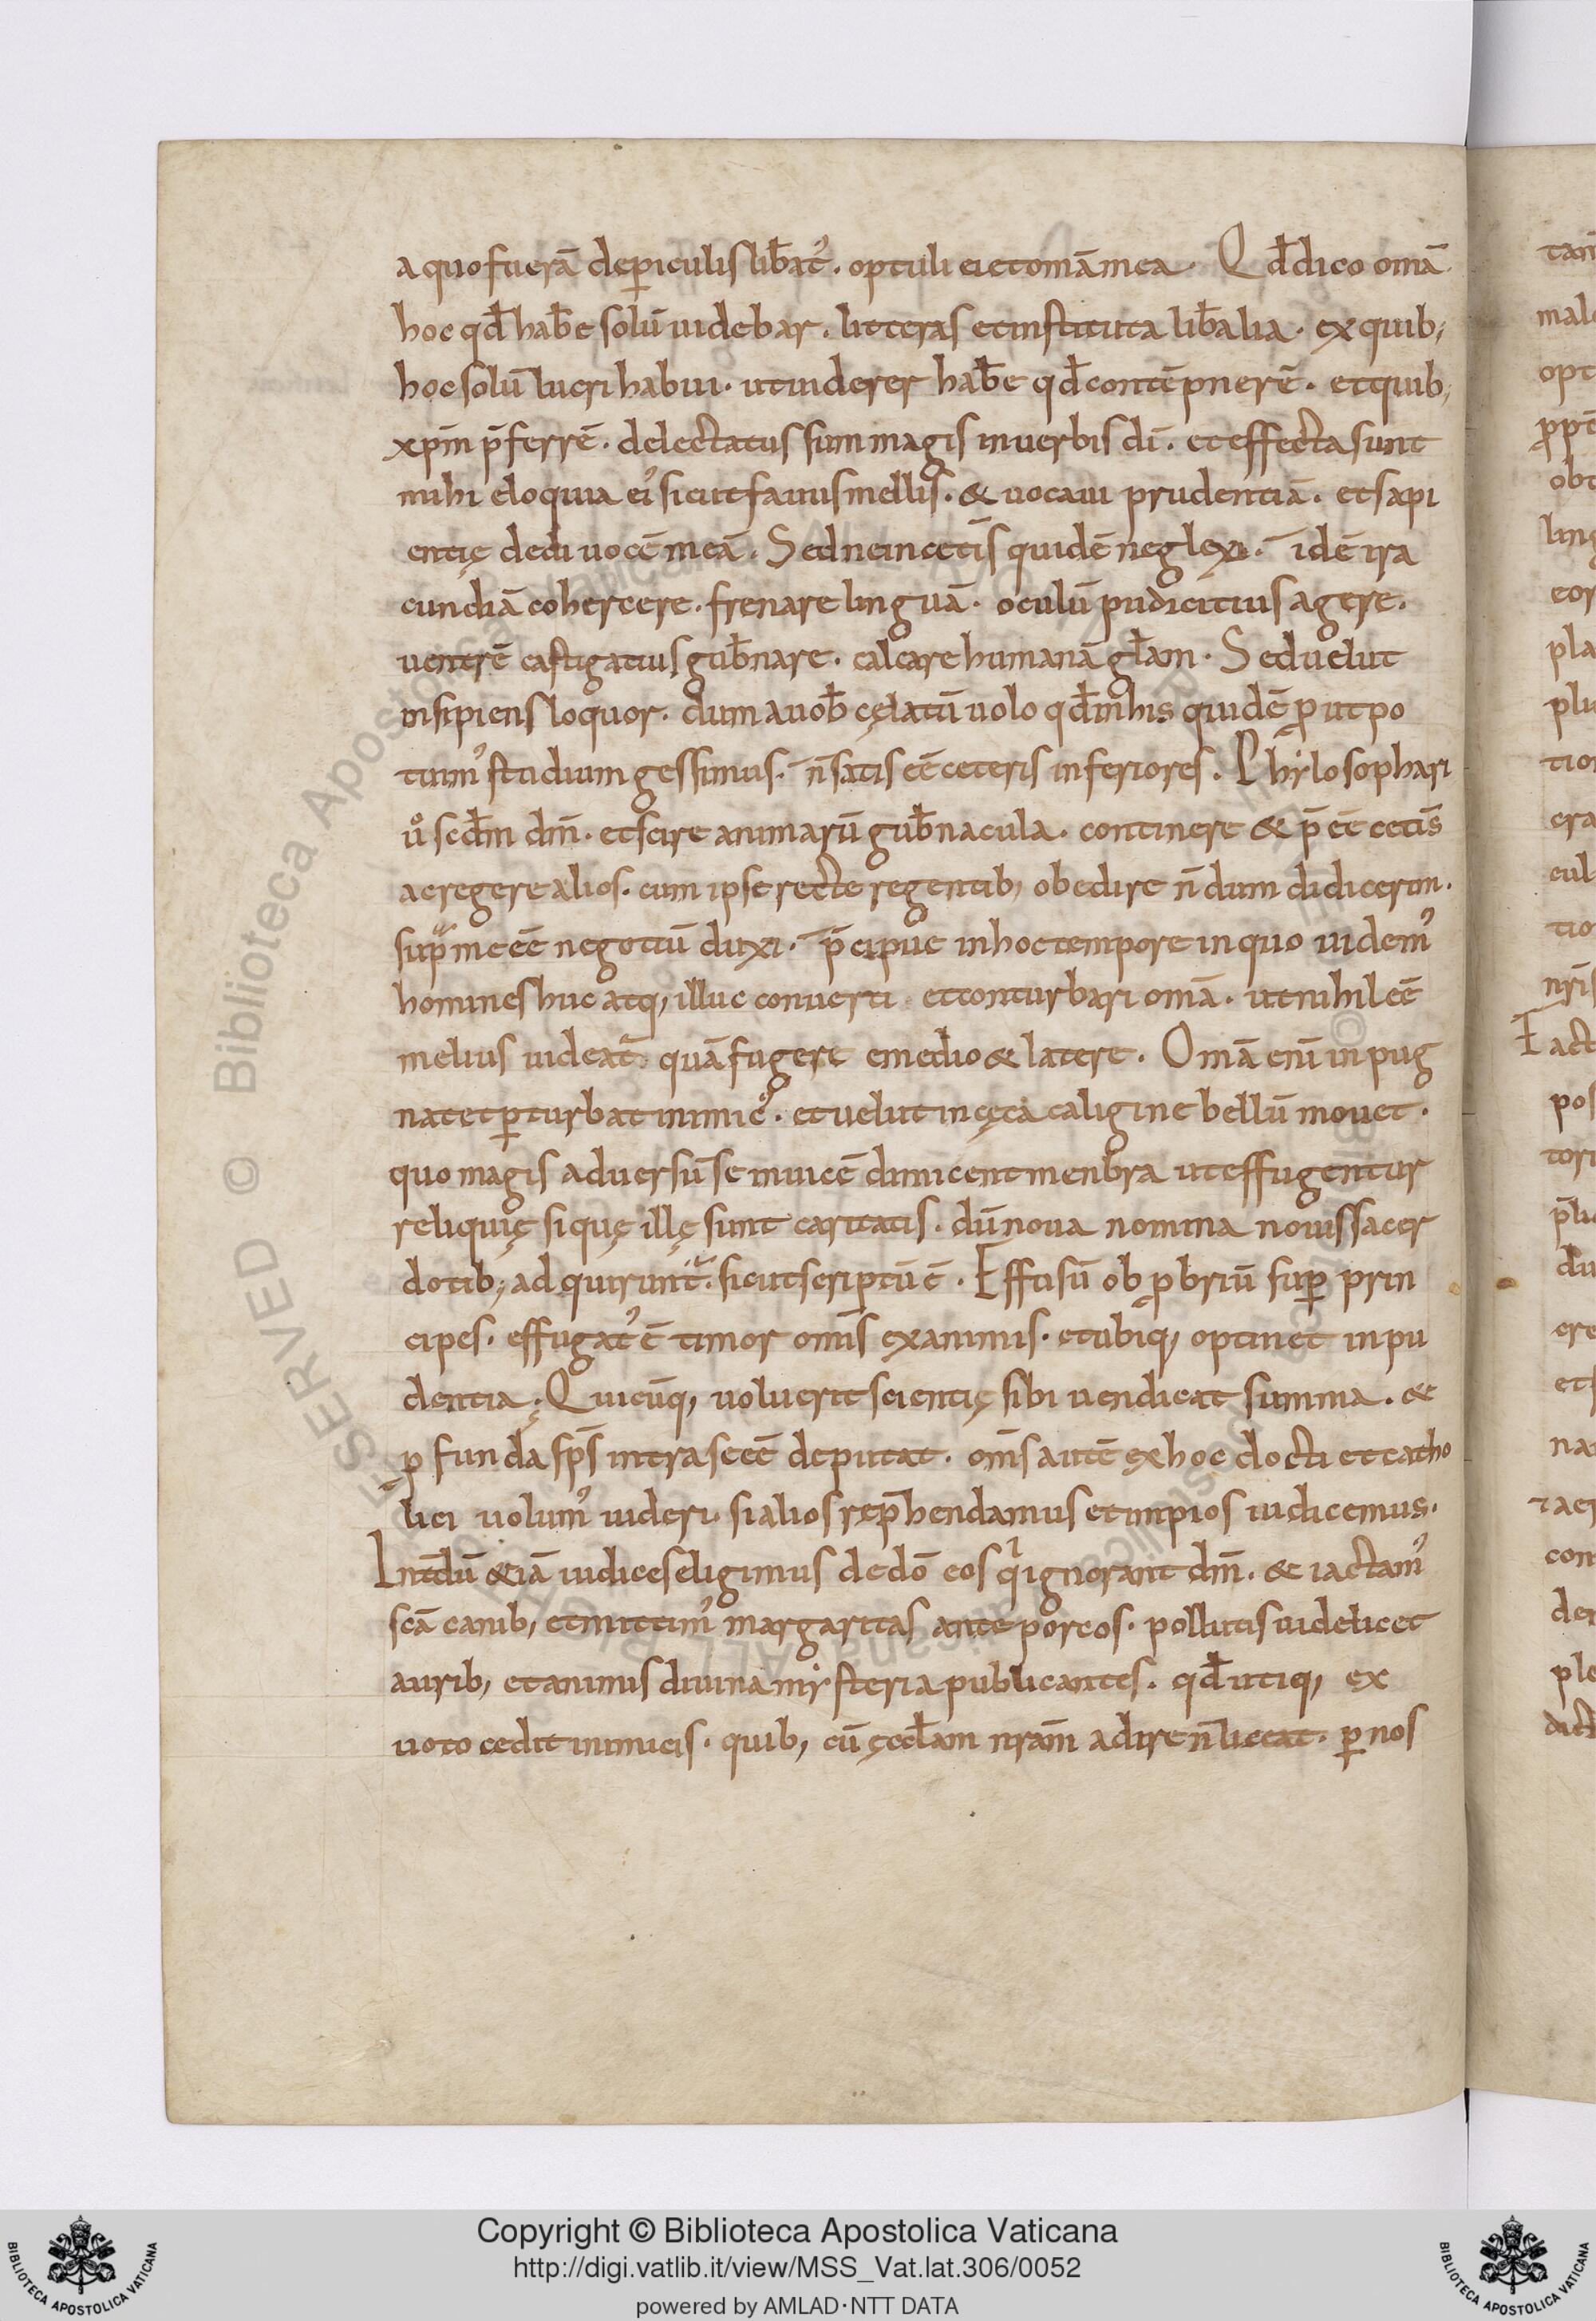 a quo fuerā de ꝑiculis lib̄at᾽. optuli ei et om̄a mea. Qd̄ dico om̄a
hoc qd̄ hab̄e solū uidebar. litteras et instituta lib̄alia. ex quib;
hoc solū lucri habui. ut uiderer hab̄e qd̄ contēpnerē. et quib;
xp̄m p̄ferrē. delectatus sum magis in uerbis dī. et effecta sunt
mihi eloquia ei᾽ sicut fauus mellis. & uocaui prudentiā. et sapi
entię dedi uocē meā. Sed ne in cet̄is quidē neglexi. idē ira
cundiā cohercere. frenare linguā. oculū pudicitius agere.
uentrē castigatius gub̄nare. calcare humanā gl̄am. Sed uelut
insipiens loquor. dum a uob̄ cęlatū uolo qd̄ in his quidē ꝓut po
tuim᾽ studium gessimus. n̄ satis eē ceteris inferiores. Phylosophari
ů scd̄m dm̄. et scire animarū gub̄nacula. continere & p̄ eē cet̄is
ac regere alios. cum ipse recte regentib; obedire n̄dum didicerim.
supͣ me eē negotiū duxi. p̄cipue in hoc tempore in quo uidem᾽
homines huc atq; illuc conuerti et conturbari om̄a. ut nihil eē
melius uideat᷑ quā fugere e medio & latere. Om̄a enī inpug
nat et ꝑturbat inimic᾽. et uelut in cęca caligine bellū mouet.
quo magis aduersū se inuicē dimicent menbra ut effugentur
reliquię si quę illę sunt caritatis. dū noua nomina nouis sacer
dotib; adquirunt᷑. sicut scriptū ē. Effusū obꝓbriū suꝑ prin
cipes. effugat᾽ ē timor om̄s ex animis. et ubiq; optinet inpu
dentia. Quicūq; uoluerit scientię sibi uendicat summa. &
ꝓfunda sp̄s intra se eē deputat. om̄s autē ex hoc docti et catho
lici uolum᾽ uideri si alios rep̄hendamus et impios iudicemus.
Int̄dū & iā iudices eligimus de dō eos qͥ ignorant dm̄. & iactam᾽
scā canib; et mittim᾽ margaritas ante porcos. pollutis uidelicet
aurib; et animis diuina mẏsteria publicantes. qd̄ utiq; ex
uoto cedit inimicis. quib; cū ęccl̄am nr̄am adire n̄ liceat. ꝑ nos
Copyright © Biblioteca Apostolica Vaticana
http://digi.vatlib.it/view/MSS_Vat.lat.306/0052
powered by AMLAD·NTT DATA